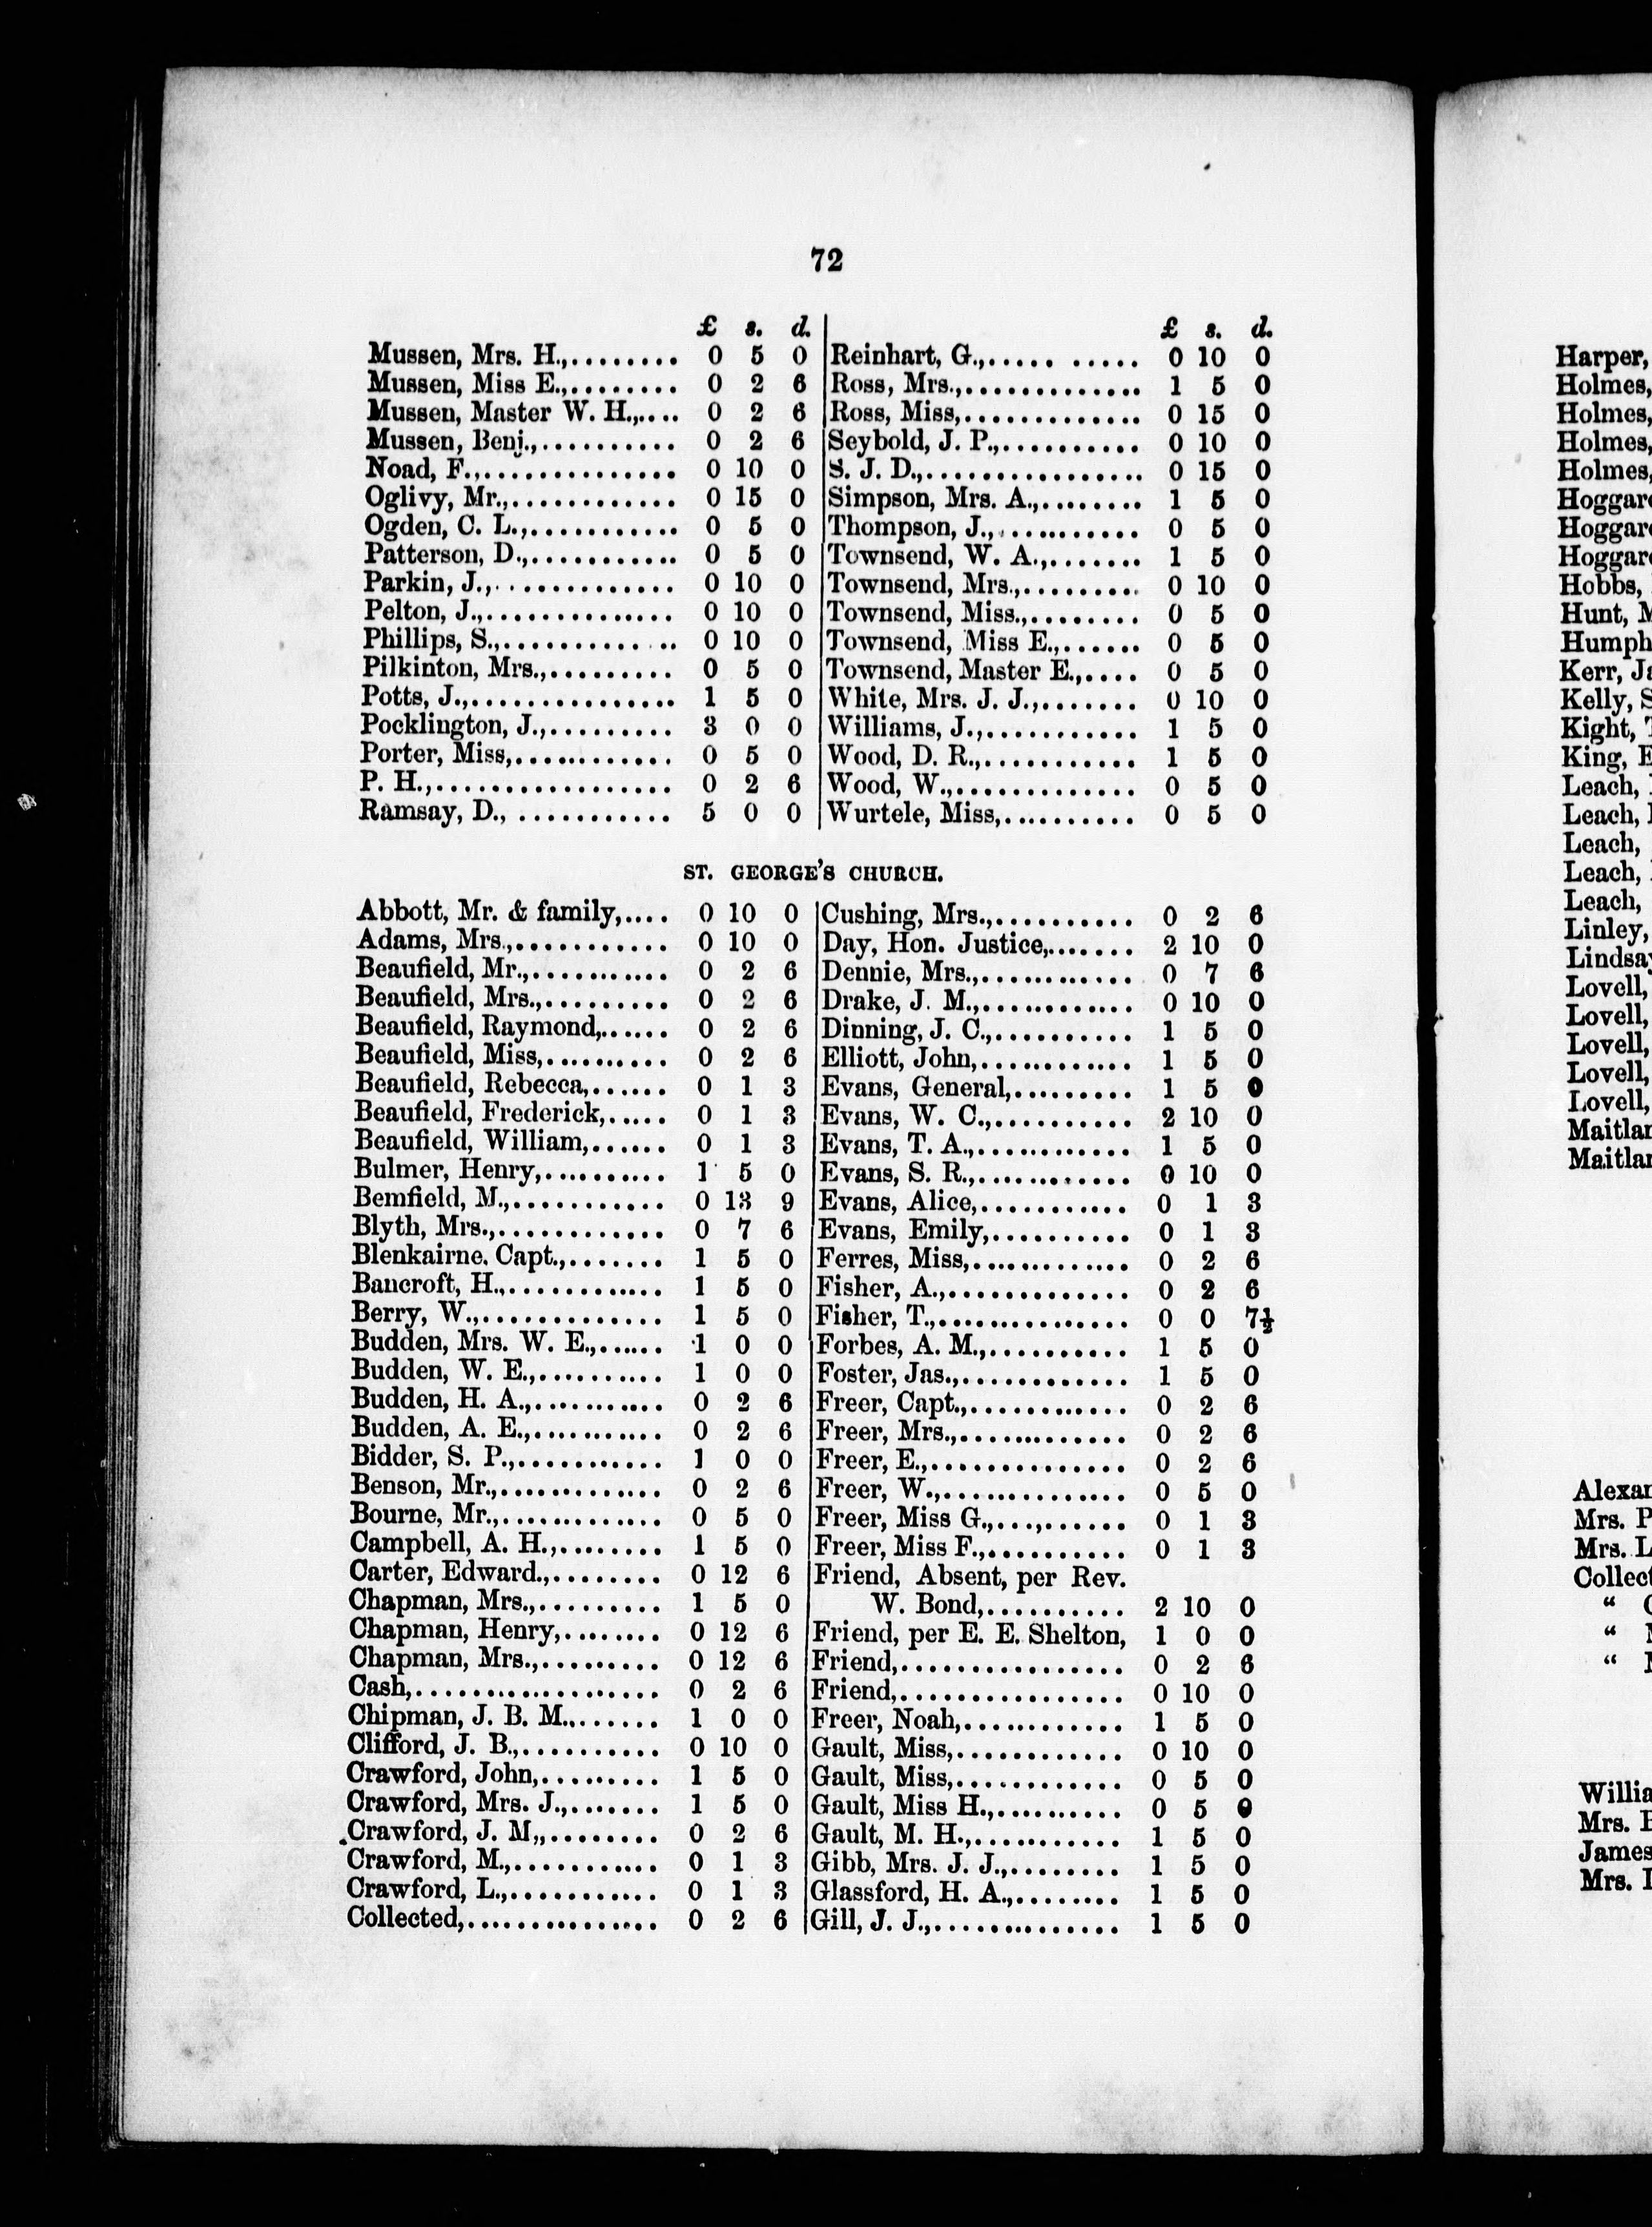 72
£ s. d.
Mussen, Mrs. H.,........ 0 5 0
Mussen, Miss E.,........ 0 2 6
Mussen, Master W. H.,.... 0 2 6
Mussen, Benj.,.......... 0 2 6
Noad, F.,............... 0 10 0
Oglivy, Mr.,............ 0 15 0
Ogden, C. L.,........... 0 5 0
Patterson, D.,........... 0 5 0
Parkin, J.,............. 0 10 0
Pelton, J.,.............. 0 10 0
Phillips, S.,............. 0 10 0
Pilkinton, Mrs.,......... 0 5 0
Potts, J.,................ 1 5 0
Pocklington, J.,......... 3 0 0
Porter, Miss,............ 0 5 0
P. H.,................. 0 2 6
Ramsay, D., ........... 5 0 0
£ s. d.
Reinhart, G.,..... ..... 0 10 0
Ross, Mrs.,.............. 1 5 0
Ross, Miss,.............. 0 15 0
Seybold, J. P.,.......... 0 10 0
S. J. D.,................. 0 15 0
Simpson, Mrs. A.,........ 1 5 0
Thompson, J.,........... 0 5 0
Townsend, W. A.,....... 1 5 0
Townsend, Mrs.,......... 0 10 0
Townsend, Miss.,........ 0 5 0
Townsend, Miss E.,...... 0 5 0
Townsend, Master E.,.... 0 5 0
White, Mrs. J. J.,....... 0 10 0
Williams, J.,............ 1 5 0
Wood, D. R.,........... 1 5 0
Wood, W.,.............. 0 5 0
Wurtele, Miss,.......... 0 5 0
ST. GEORGE'S CHURCH.
Abbott, Mr. & family,.... 0 10 0
Adams, Mrs.,........... 0 10 0
Beaufield, Mr.,........... 0 2 6
Beaufield, Mrs.,......... 0 2 6
Beaufield, Raymond,...... 0 2 6
Beaufield, Miss,.......... 0 2 6
Beaufield, Rebecca,...... 0 1 3
Beaufield, Frederick,..... 0 1 3
Beaufield, William,...... 0 1 3
Bulmer, Henry,.......... 1 5 0
Bemfield, M.,............ 0 13 9
Blyth, Mrs.,............. 0 7 6
Blenkairne. Capt.,....... 1 5 0
Bancroft, H.,............ 1 5 0
Berry, W.,.............. 1 5 0
Budden, Mrs. W. E.,...... 1 0 0
Budden, W. E.,.......... 1 0 0
Budden, H. A.,........... 0 2 6
Budden, A. E.,........... 0 2 6
Bidder, S. P.,............ 1 0 0
Benson, Mr.,............. 0 2 6
Bourne, Mr.,............. 0 5 0
Campbell, A. H.,........ 1 5 0
Carter, Edward.,........ 0 12 6
Chapman, Mrs.,......... 1 5 0
Chapman, Henry,........ 0 12 6
Chapman, Mrs.,......... 0 12 6
Cash,................... 0 2 6
Chipman, J. B. M.,...... 1 0 0
Clifford, J. B.,.......... 0 10 0
Crawford, John,......... 1 5 0
Crawford, Mrs. J.,....... 1 5 0
Crawford, J. M,,........ 0 2 6
Crawford, M.,........... 0 1 3
Crawford, L.,............ 0 1 3
Collected,............... 0 2 6
Cushing, Mrs.,.......... 0 2 6
Day, Hon. Justice,....... 2 10 0
Dennie, Mrs.,............ 0 7 6
Drake, J. M.,............ 0 10 0
Dinning, J. C.,.......... 1 5 0
Elliott, John,............ 1 5 0
Evans, General,......... 1 5 0
Evans, W. C.,.......... 2 10 0
Evans, T. A.,............ 1 5 0
Evans, S. R.,............ 0 10 0
Evans, Alice,........... 0 1 3
Evans, Emily,.......... 0 1 3
Ferres, Miss,............. 0 2 6
Fisher, A.,............. 0 2 6
Fisher, T.,............... 0 0 7½
Forbes, A. M.,.......... 1 5 0
Foster, Jas.,............ 1 5 0
Freer, Capt.,............ 0 2 6
Freer, Mrs.,............. 0 2 6
Freer, E.,............... 0 2 6
Freer, W.,.............. 0 5 0
Freer, Miss G.,...,...... 0 1 3
Freer, Miss F.,.......... 0 1 3
Friend, Absent, per Rev.
W. Bond,.......... 2 10 0
Friend, per E. E. Shelton, 1 0 0
Friend,................. 0 2 6
Friend,................. 0 10 0
Freer, Noah,............ 1 5 0
Gault, Miss,............. 0 10 0
Gault, Miss,............. 0 5 0
Gault, Miss H.,.......... 0 5 0
Gault, M. H.,............ 1 5 0
Gibb, Mrs. J. J.,........ 1 5 0
Glassford, H. A.,........ 1 5 0
Gill, J. J.,.............. 1 5 0
Harper,
Holmes,
Holmes,
Holmes,
Holmes,
Hobbs,
Hunt,
Kerr,
Kelly,
Kight,
King,
Leach,
Leach,
Leach,
Leach,
Leach,
Linley,
Lovell,
Lovell,
Lovell,
Lovell,
Lovell,
Mrs.
Mrs.
“
“
“
Mrs.
James
Mrs.